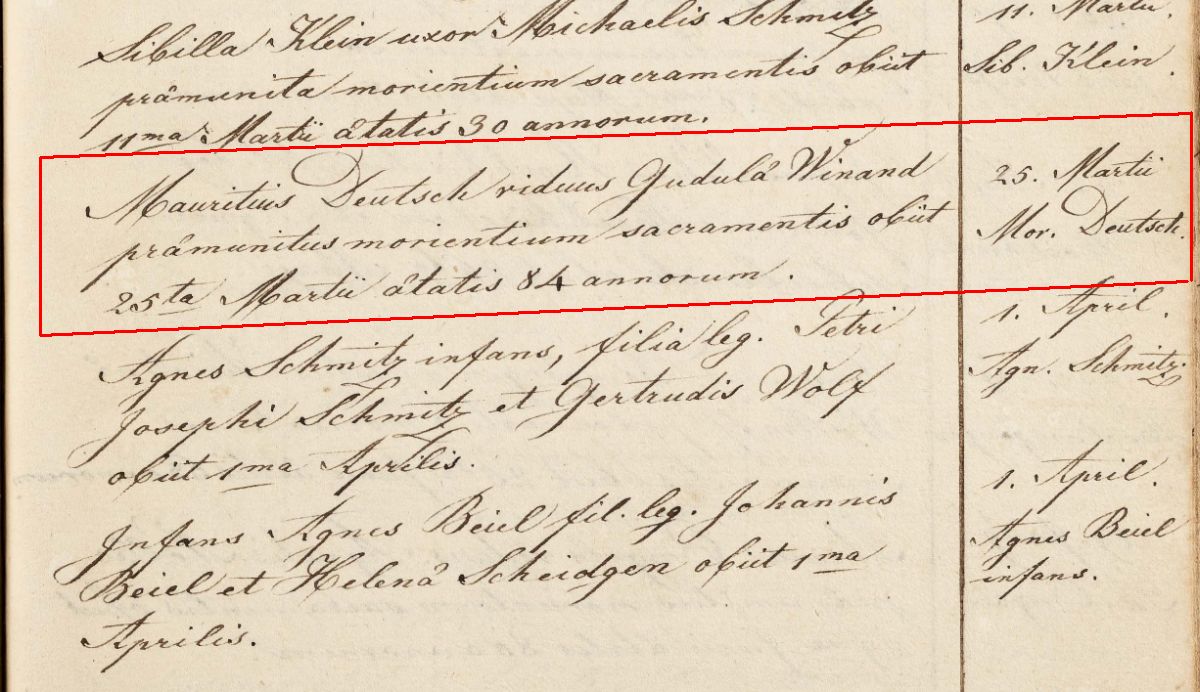 Sibilla Klein uxor Michaelis Schmitz
prâmunita morientium sacramentis obiit
11ma Martii âtatis 30 annorum.
Mauritius Deutsch viduus Gudulâ Winand
prâmunitus morientium sacramentis obiit
25ta Martii âtatis 84 annorum.
Agnes Schmitz infans, filia leg. Petri
Josephi Schmitz et Gertrudis Wolf
obiit 1ma Aprilis.
Infans Agnes Beiel fil. leg. Johannis
Beiel et Helenâ Scheidgen obiit 1ma
Aprilis.
11. Martii.
Sib. Klein.
25. Martii
Mor. Deutsch.
1. April.
Agn. Schmitz.
1. April.
Agnes Beiel
infans.